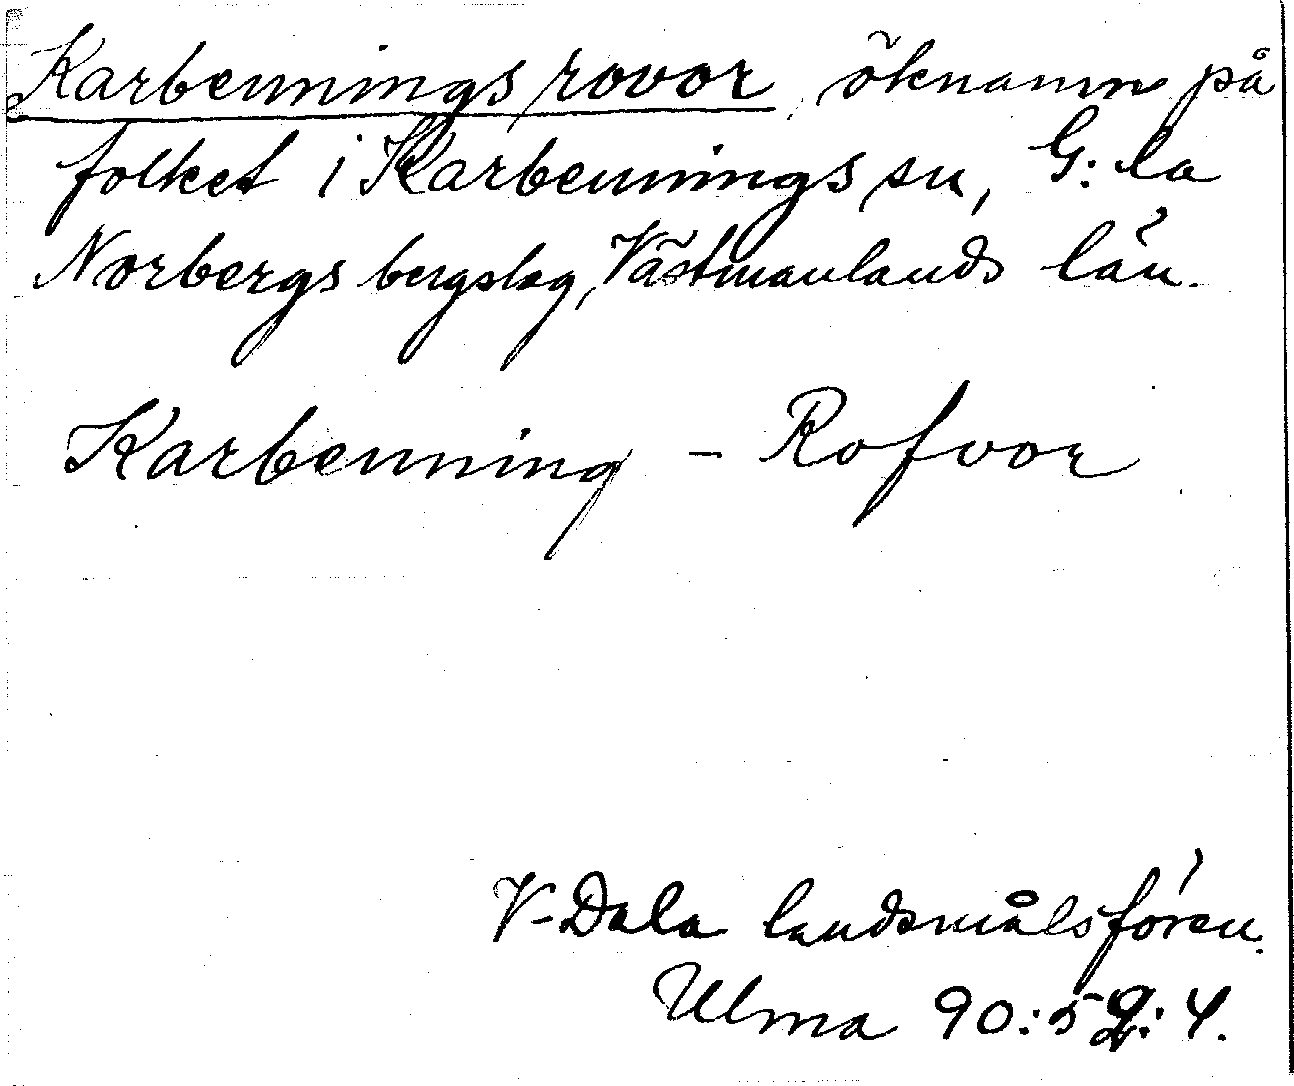 Karbenningsrovor, öknamn på
folket i Karbennings sn, G:la
Norbergs bergslag, Västmanlands län.
Karbenning – Rofvor
V-Dala landsmålsfören.
Ulma 90:52:4.